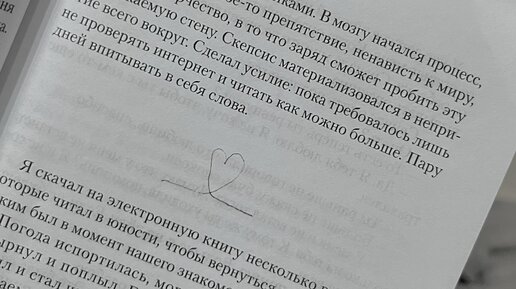 ками. В мозгу начался процесс,
то препятствие, ненависть к миру,
чество, в то что заряд сможет пробить эту
стену. Скепсис материализовался в непри-
ие всего вокруг. Сделал усилие: пока требовалось лишь
не проверять интернет и читать как можно больше. Пару
дней впитывать в себя слова.
Я скачал на электронную книгу несколько
которые читал в юности, чтобы вернуться
ким был в момент нашего знаком
Погода испортилась, мо
рнул и поплыл.
л и стал